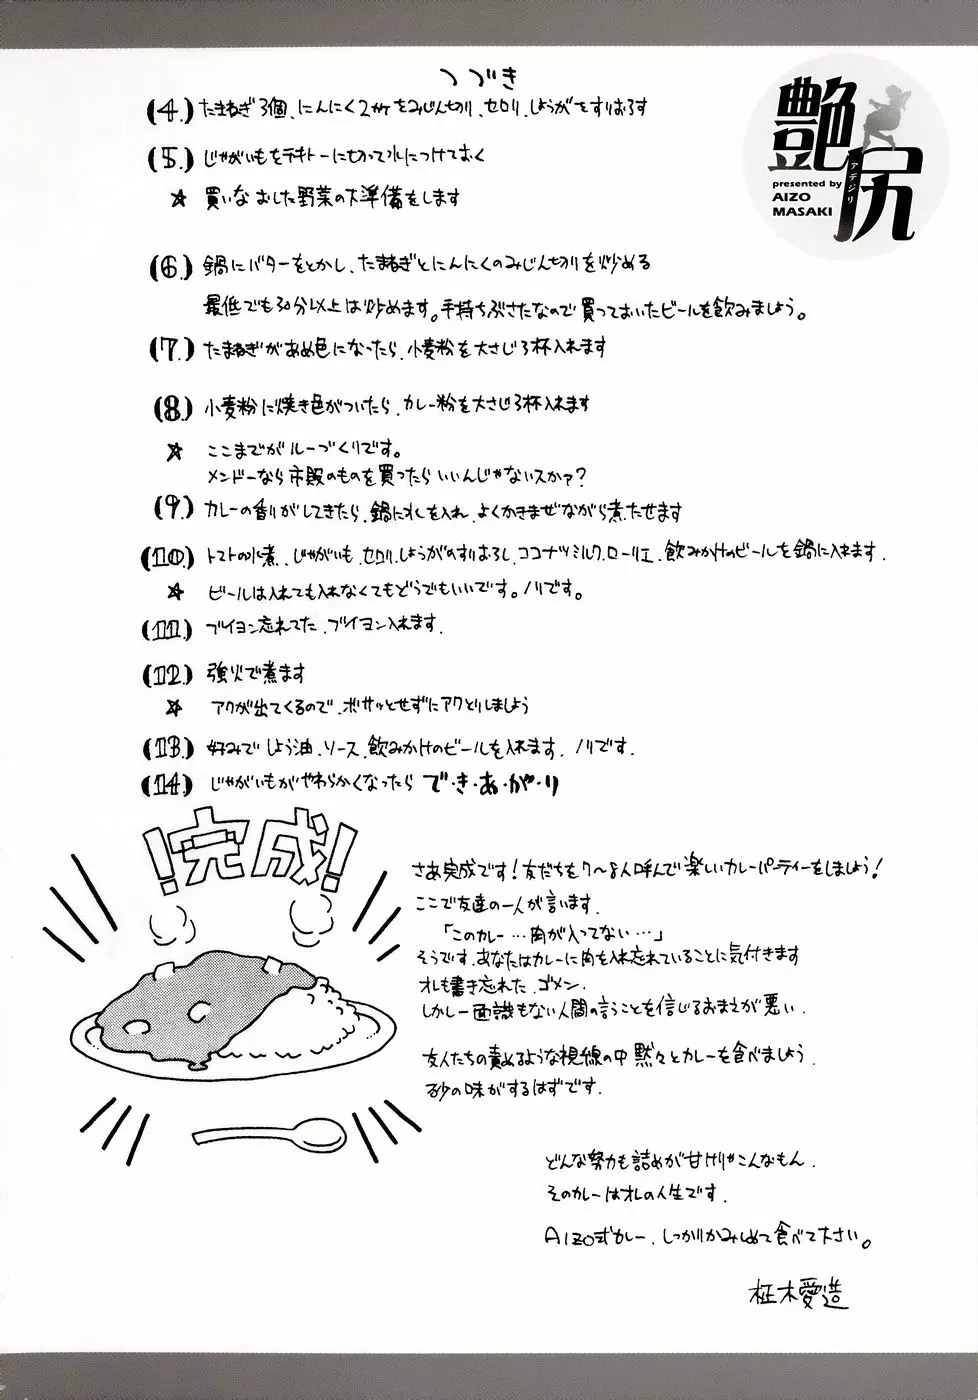 つづき
(4.) たまねぎ3個、にんにく2ヶをみじん切り、セロリ、しょうがをすりおろす
(5.) じゃがいもをテキトーに切って水につけておく
☆ 買いなおした野菜の下準備をします
(6.) 鍋にバターをとかし、たまねぎとにんにくのみじん切りを炒める
最低でも30分以上は炒めます。手持ちぶさたなので買っておいたビールを飲みましょう。
(7.) たまねぎがあめ色になったら、小麦粉を大さじ3杯入れます
(8.) 小麦粉に焼き色がついたら、カレー粉を大さじ3杯入れます
☆ ここまでがルーづくりです。
メンドーなら市販のものを買ったらいいんじゃないスかァ?
(9.) カレーの香りがしてきたら、鍋に水を入れ、よくかきまぜながら煮たせます
(10.) トマトの水煮、じゃがいも、セロリ、しょうがのすりおろし、ココナツミルク、ローリエ、飲みかけのビールを鍋に入れます.
☆ ビールは入れても入れなくてもどうでもいいです。ノリです。
(11.) ブイヨン忘れてた、ブイヨン入れます.
(12.) 強火で煮ます
☆ アクが出てくるので、ボサッとせずにアクとりしましょう
(13.) 好みでしょう油、ソース、飲みかけのビールを入れます、ノリです.
(14.) じゃがいもがやわらかくなったら で・き・あ・が・り
!完成!
さあ完成です!友だちを7〜8人呼んで楽しいカレーパーティーをしましょう!
ここで友達の一人が言います.
「このカレー…肉が入ってない…」
そうです、あなたはカレーに肉を入れ忘れていることに気付きます
オレも書き忘れた、ゴメン.
しかし一面識もない人間の言うことを信じるおまえが悪い.
友人たちの責めるような視線の中 黙々とカレーを食べましょう.
砂の味がするはずです.
どんな努力も詰めが甘けりゃこんなもん.
そのカレーはオレの人生です.
AIZO式カレー、しっかりかみしめて食べて下さい。
柾木愛造
艶尻
アデジリ
presented by
AIZO
MASAKI